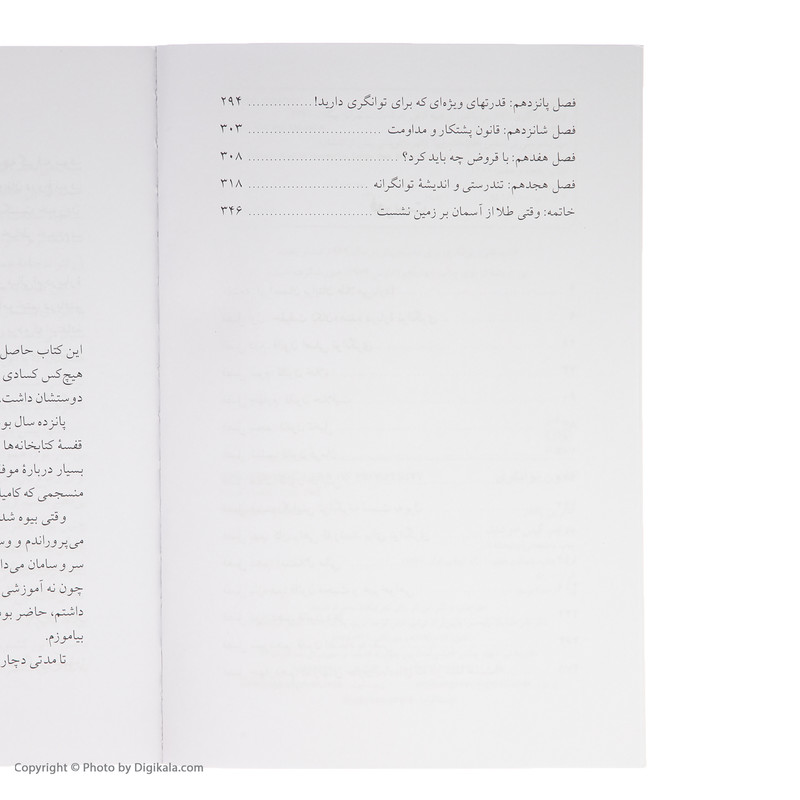 فصل پانزدهم: قدرتهای ویژه‌ای که برای توانگری دارید! ............... ۲۹۴
فصل شانزدهم: قانون پشتکار و مداومت ............................... ۳۰۳
فصل هفدهم: با قروض چه باید کرد؟ ................................... ۳۰۸
فصل هجدهم: تندرستی و اندیشهٔ توانگرانه ............................ ۳۱۸
خاتمه: وقتی طلا از آسمان بر زمین نشست ............................ ۳۴۶
این کتاب حاصل
هیچ‌کس کسادی
دوستشان داشت.
پانزده سال بو
قفسهٔ کتابخانه‌ها
بسیار دربارهٔ موفـ
منسجمی که کامیا
وقتی بیوه شد
می‌پروراندم و وسـ
سر و سامان می‌دا
چون نه آموزشی
داشتم، حاضر بود
بیاموزم.
تا مدتی دچار
Copyright © Photo by Digikala.com